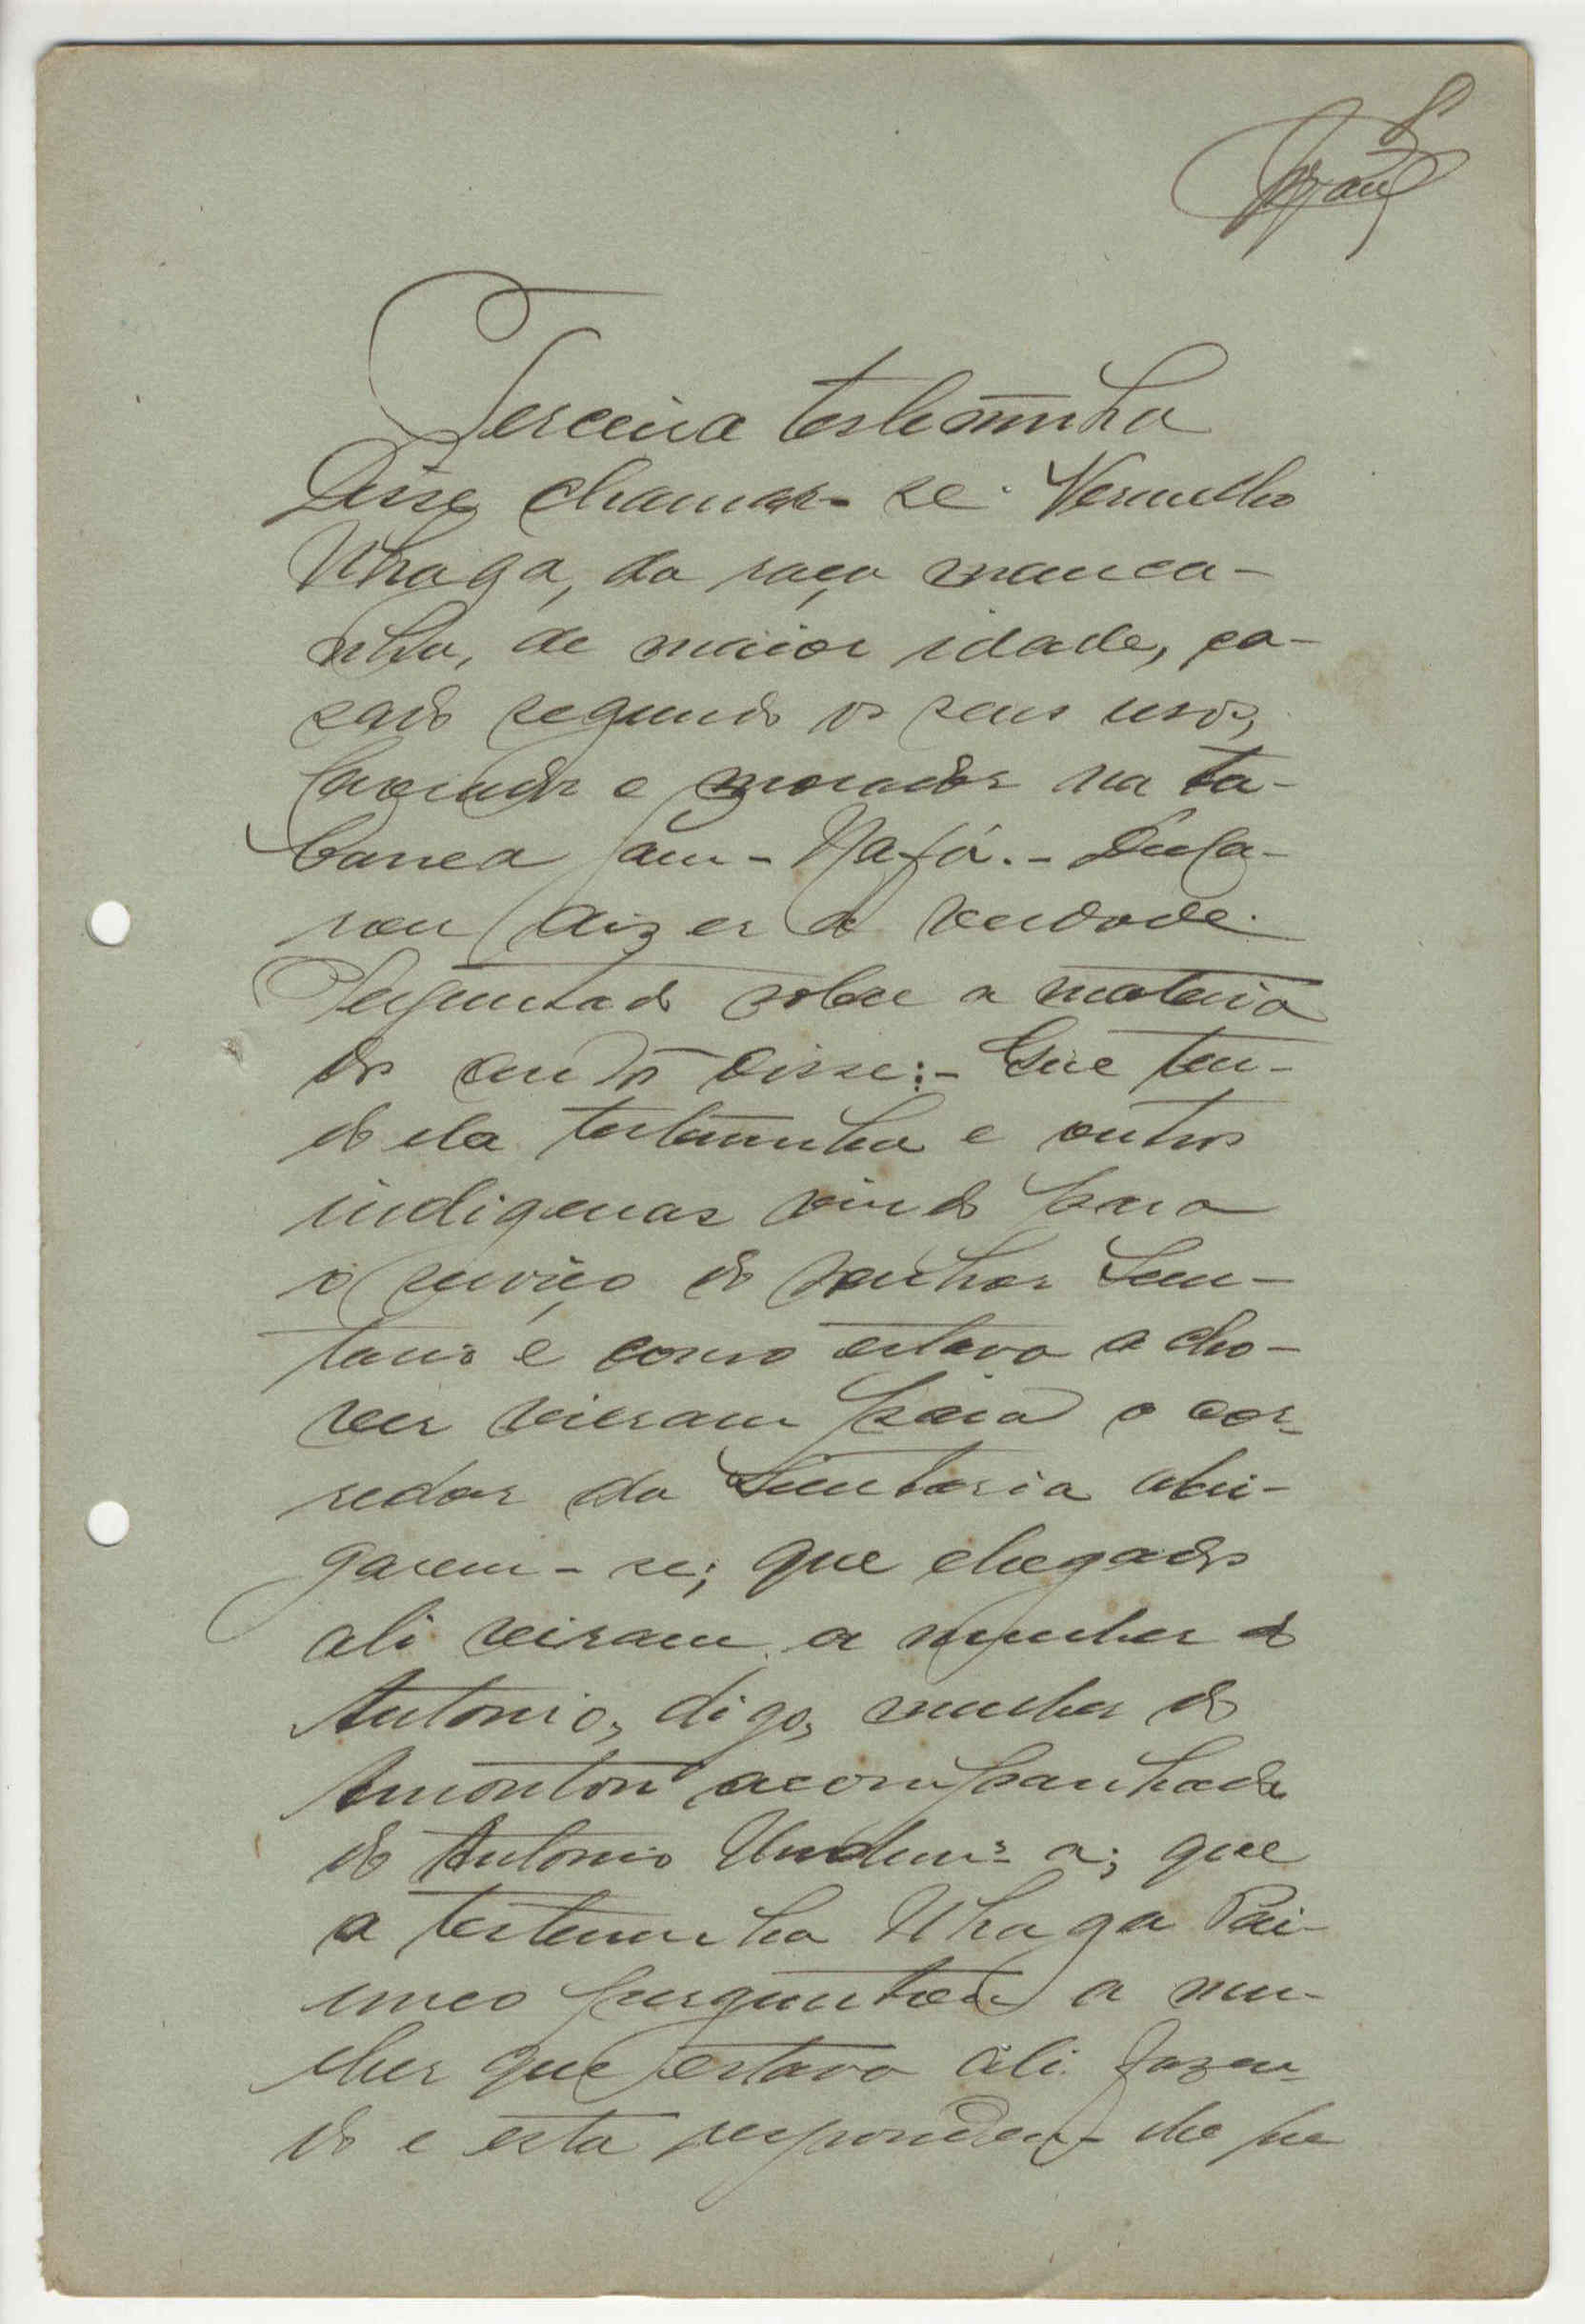 Terceira testemunha
Disse chamar-se Vermelho
Nhaga, da raça manca-
nha, de maior idade, ca-
sado segundo os seus usos,
lavrador e morador na ta-
banca Jam-Nafá.- Decla-
rou dizer a verdade.
Perguntado sobre a materia
do disse:- Que ten-
do ela testemunha e outros
indigenas vindo para
o serviço do senhor Secre-
tario e como estava a cho-
ver vieram para o cor-
redor da Secretaria abri-
garem-se; que chegados
ali viram a mulher do
Antonio, digo, mulher do
acompanhada
do Antonio que
a testemunha Nhaga
perguntou a mu-
lher que estava ali fazen-
do e esta respondeu-lhe